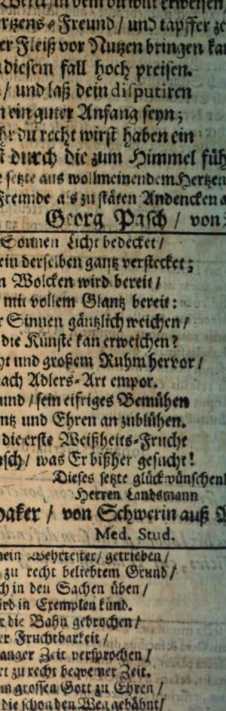 in dem du wilt erweisen
Freund / und tapffer
er Fleiß vor Nutzen bringen
diesem fall hoch preisen.
/ und laß dein disputiren
ein guter Anfang seyn;
du recht wirst haben ein
durch die zum Himmel
setzte aus wollmeinendem Hertzen
Freunde a's zu stäten Andencken
Georg Pasch / von
Sonnen Licht bedecket /
ein derselben gantz verstecket;
n Wolcken wird bereit /
mit vollem Glantz bereit:
r Sinnen gäntzlich weichen /
die Künste kan erweichen?
ht und großem Ruhm hervor /
nach Adlers-Art empor.
und / sein eifriges Bemühen
und Ehren an zublühen.
die erste Weißheits-Frucht
nsch / was Er bißher gesucht!
Dieses setzte glückwünschend
Herren Landsmann
/ von Schwerin auß
Med. Stud.
mein / getrieben /
zu recht beliebtem Grund /
ch in den Sachen üben /
in Exempeln kund.
die Bahn gebrochen /
er Fruchtbarkeit /
langer Zeit versprochen /
zu recht beqvemer Zeit.
m grossen Gott zu Ehren /
die schon den Weg gebähnt /